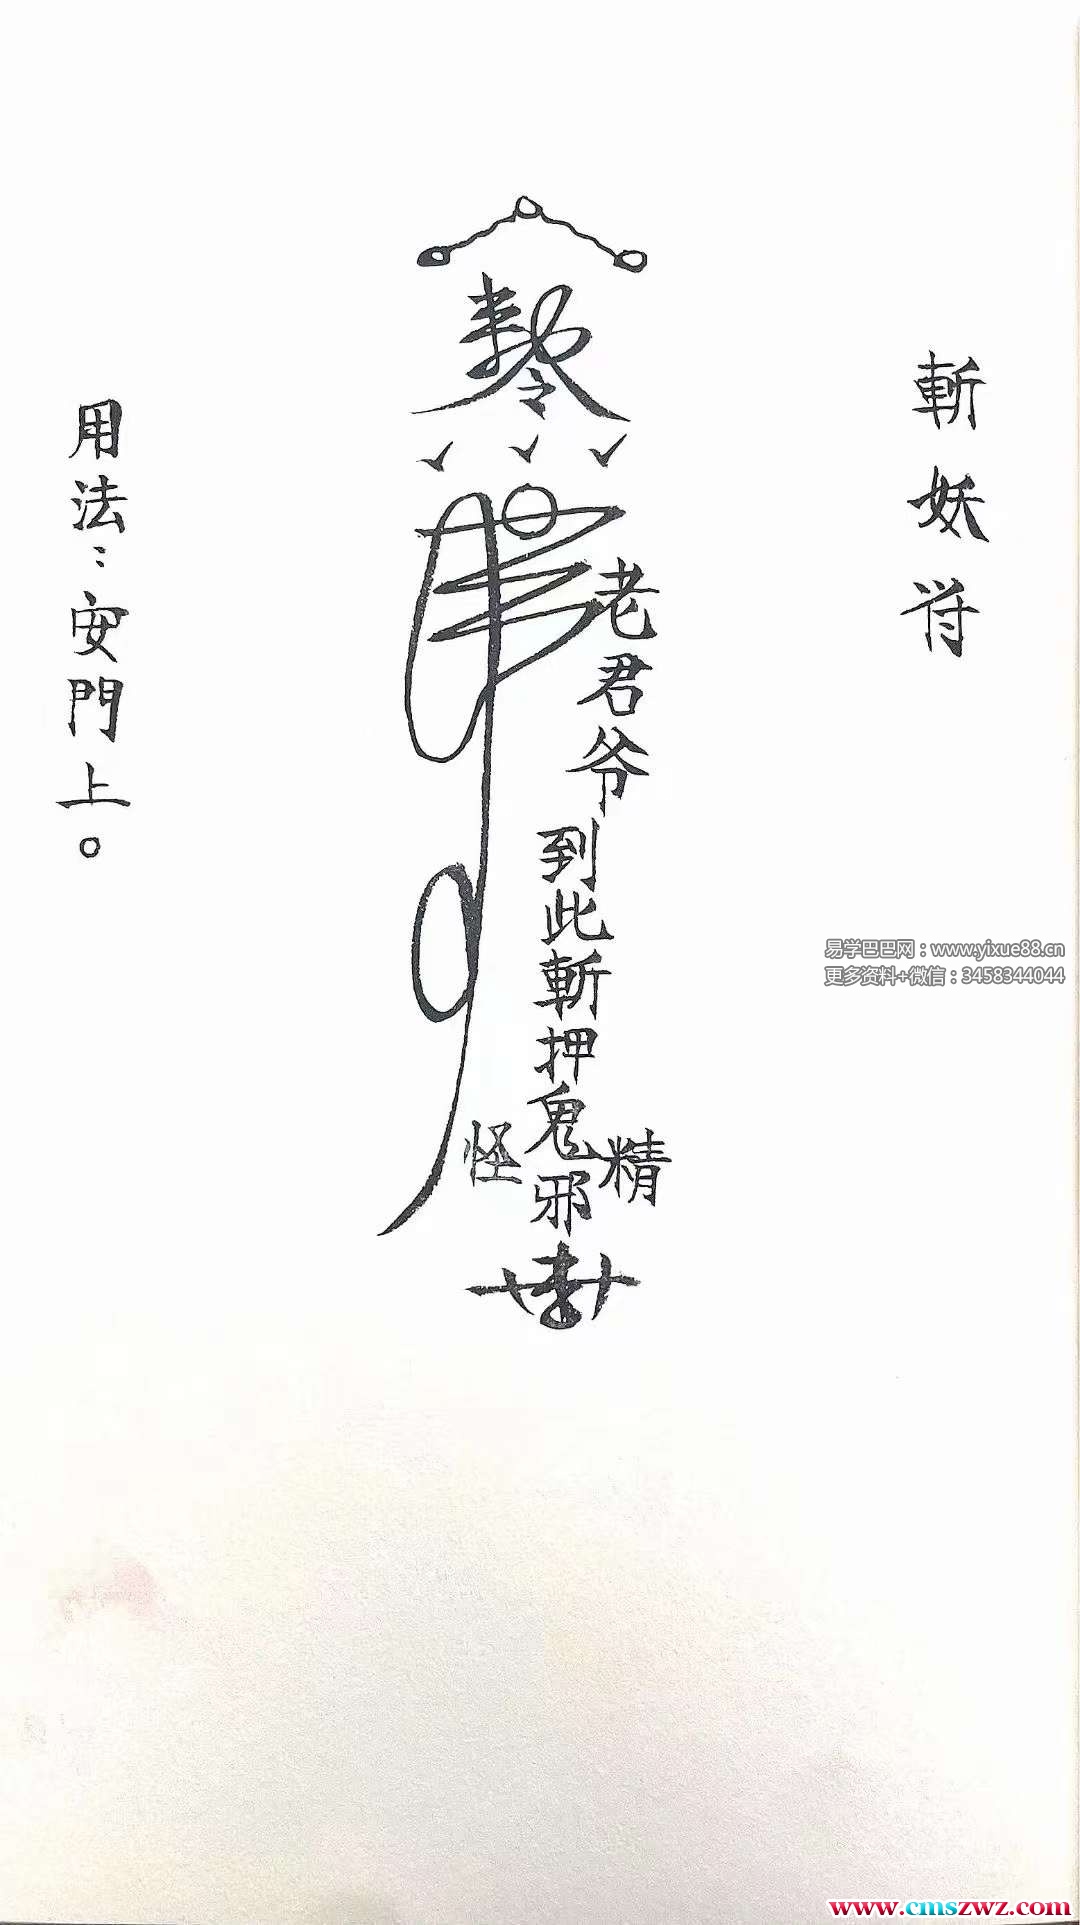 斬妖符
敕令
老君爷到此斬押鬼邪
精
怪
用法：安門上。
易学巴巴网：www.yixue88.cn
更多资料+微信：3458344044
www.cmszwz.com